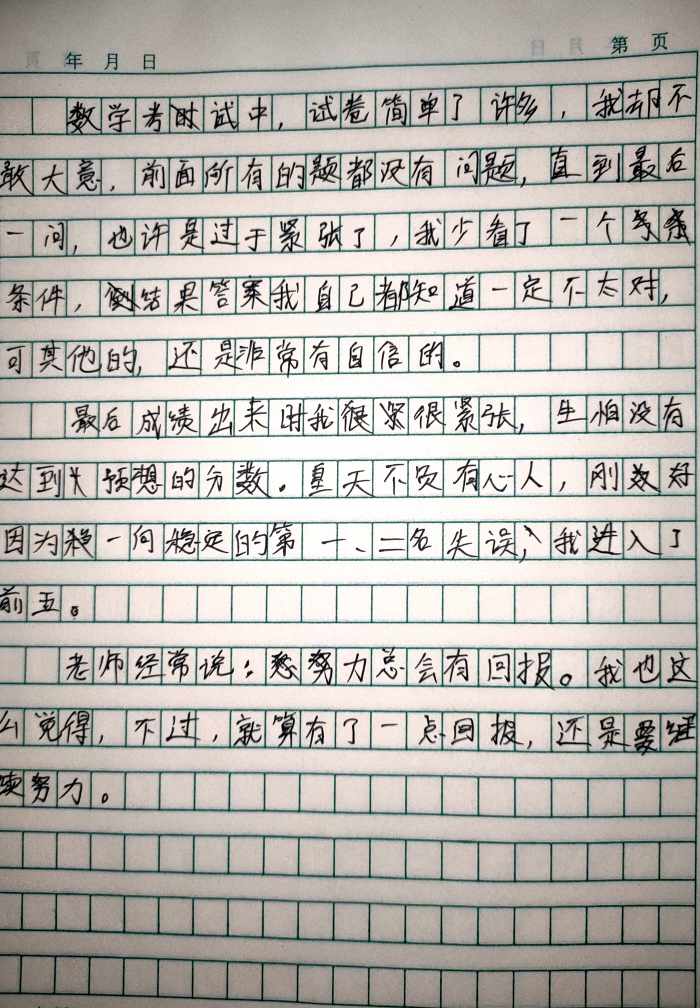 年 月 日 第 页
数学考时试中，试卷简单了许多，我却不
敢大意，前面所有的题都没有问题，直到最后
一问，也许是过于紧张了，我少看了一个条
条件，结果答案我自己都知道一定不太对，
可其他的，还是非常有自信的。
最后成绩出来时我很紧很紧张，生怕没有
达到预想的分数。皇天不负有心人，刚好
因为一向稳定的第一、二名失误，我进入了
前五。
老师经常说：努力总会有回报。我也这
么觉得，不过，就算有了一点回报，还是要继
续努力。